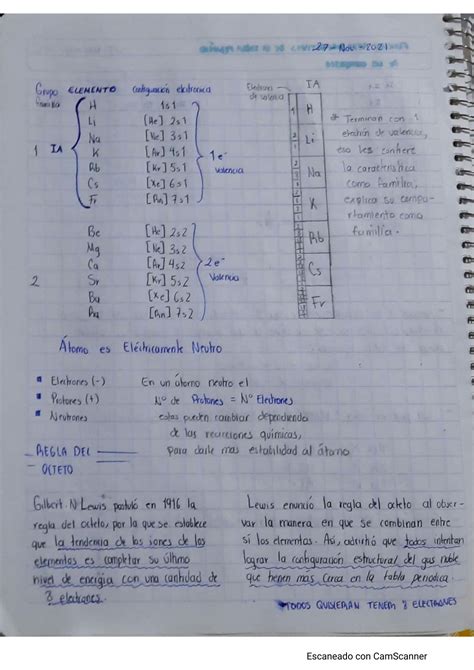 27 - Nov - 2021
Grupo ELEMENTO Configuración electronica
familia
H 1s1
Li [He] 2s1
Na [Ne] 3s1
1 IA K [Ar] 4s1 1 e-
Rb [Kr] 5s1 Valencia
Cs [Xe] 6s1
Fr [Rn] 7s1
Be [He] 2s2
Mg [Ne] 3s2
Ca [Ar] 4s2 2 e-
2 Sr [Kr] 5s2 Valencia
Ba [Xe] 6s2
Ra [Rn] 7s2
Electrones de valencia
IA
1 H
Li
Na
K
Rb
Cs
Fr
* Terminan con 1
electrón de valencia,
eso les confiere
la caracteristica
como familia,
explica su compo-
rtamiento como
familia.
Átomo es Eléctricamente Neutro
Electrones (-) En un átomo neutro el
Protones (+) N° de Protones = N° Electrones
Neutrones estos pueden cambiar dependiendo
de las reacciones químicas,
REGLA DEL para darle mas estabilidad al átomo
OCTETO
Gilbert. N Lewis postuló en 1916 la
regla del octeto, por la que se establece
que la tendencia de los iones de los
elementos es completar su último
nivel de energía con una cantidad de
8 electrones.
Lewis enunció la regla del octeto al obser-
var la manera en que se combinan entre
sí los elementos. Así, advirtió que todos intentan
lograr la configuración estructural del gas noble
que tienen mas cerca en la tabla periodica.
TODOS QUISIERAN TENER 8 ELECTRONES
Escaneado con CamScanner